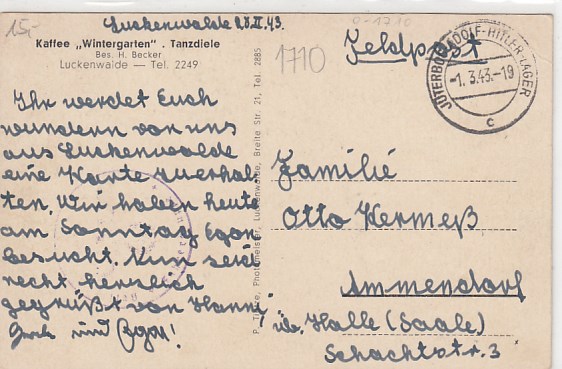 15,-
Luckenwalde 28.II.43.
Kaffee „Wintergarten“ . Tanzdiele
Bes. H. Becker
Luckenwalde — Tel. 2249
Ihr werdet Euch
wundern von uns
aus Luckenwalde
eine Karte zu erhal-
ten. Wir haben heute
am Sonntag Egon
besucht. Nun seid
recht herzlich
gegrüßt von Hanni,
und Egon!
Photomeister, Luckenwalde, Breite Str. 21, Tel. 2885
0-1710
1710
Feldpost
JÜTERBOG ADOLF-HITLER-LAGER
-1.3.43.-19
c
Familie
Otto Kermeß
Ammendorf
üb. Halle (Saale)
Schachtstr. 3